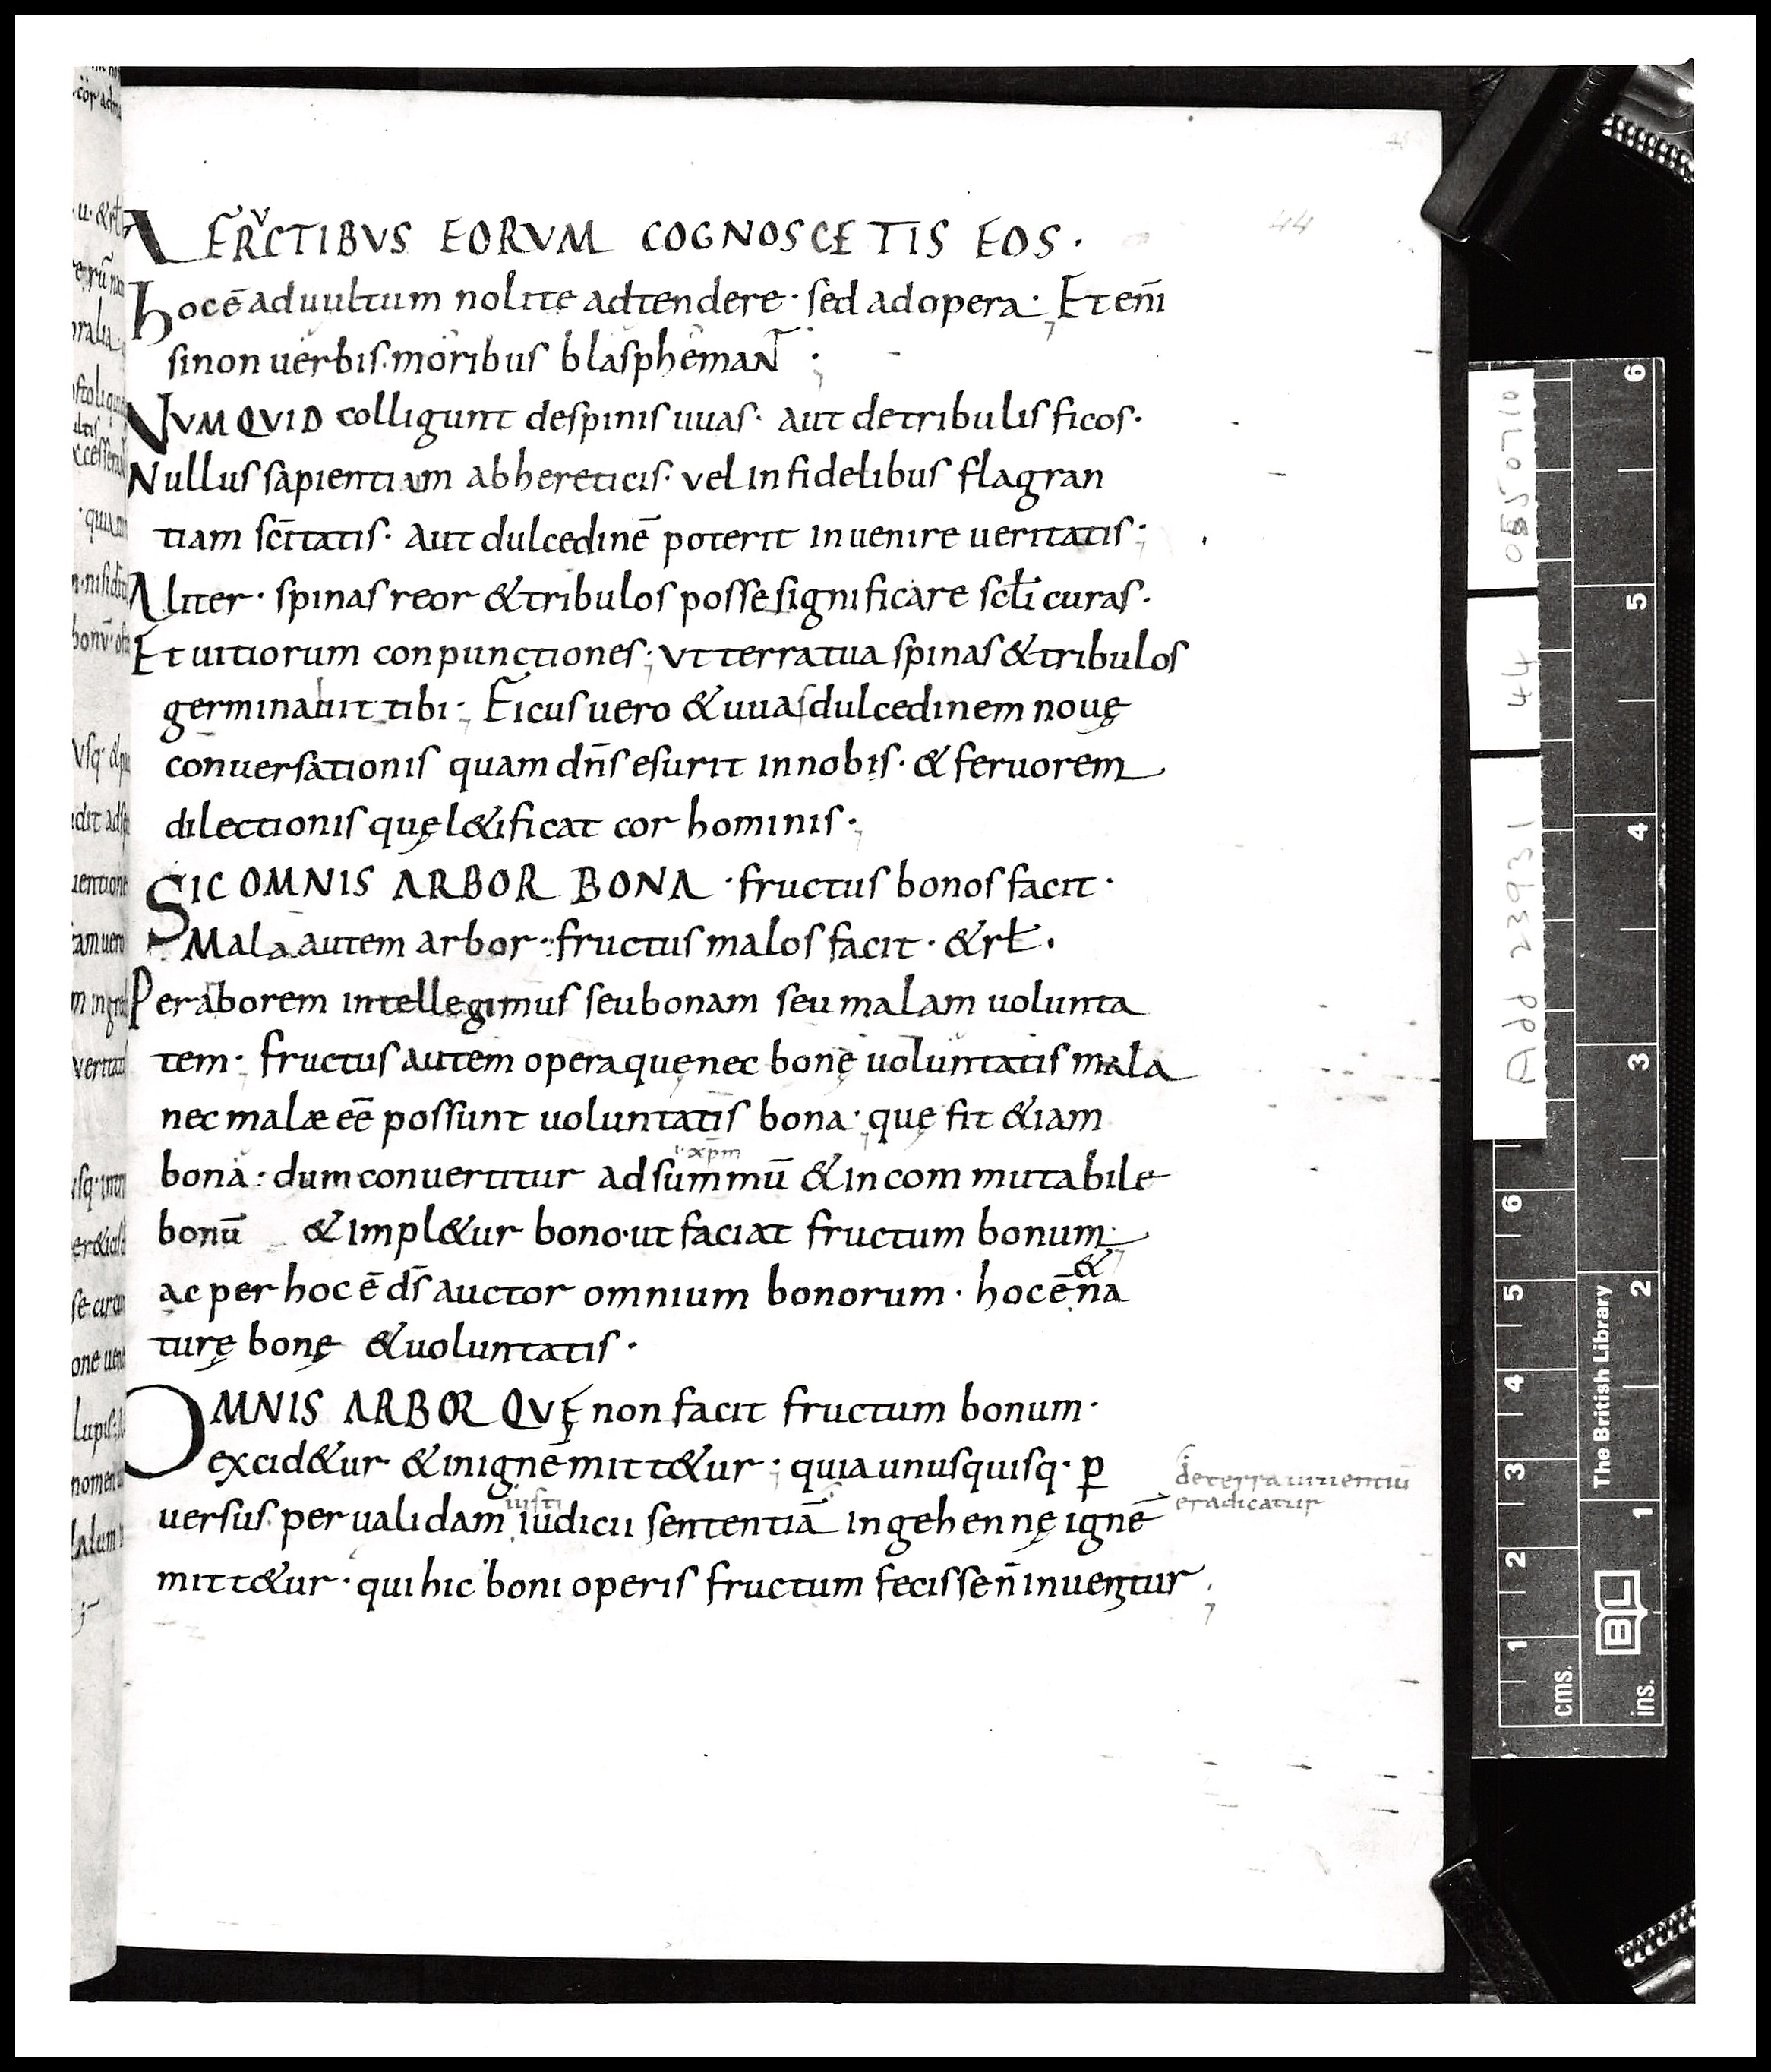 A FERCTIBVS EORVM COGNOSCETIS EOS · 44
hoc ē ad uultum nolite adtendere · sed ad opera ·, Et eni̅
si non uerbis · moribus blasphemaN̅T ·,
NVMQVID colligunt de spinis uuas · aut de tribulis ficos ·
Nullus sapientiam ab hereticis · vel infidelibus flagran
tiam sc̅itatis · Aut dulcedinē poterit inuenire ueritatis ;
Aliter · spinas reor & tribulos posse significare scłi curas ·
Et uitiorum conpunctiones ; vt terra tua spinas & tribulos
germinabit tibi ·, Ficus uero & uuas dulcedinem nouę
conuersationis quam dn̅s esurit in nobis · & feruorem
dilectionis quę l&ificat cor hominis ·,
SIC OMNIS ARBOR BONA · fructus bonos facit ·
Mala autem arbor · fructus malos facit · & rł ·
Per aborem intellegimus seu bonam seu malam uolunta
tem · fructus autem opera quę nec bonę uoluntatis mala
nec malæ eē possunt uoluntatis bona · quę fit &iam
xp̅m
bona : dum conuertitur ad summū & incommutabile
bonū & impl&ur bono · ut faciat fructum bonum ·,
&
ac per hoc ē ds̅ auctor omnium bonorum · hoc ē na
turę bonę & uoluntatis ·
OMNIS ARBOR QVĘ non facit fructum bonum ·
excid&ur & in ignē mitt&ur ; quia unusquisq · ꝑ
de terra uiuentiū
eradicatur
iusti
uersus · per ualidam iudicii sententiā in gehennę ignē
mitt&ur · qui hic boni operis fructum fecisse n̅ inuentur ;
Add 23931
44
0550710
The British Library
BL
cms. 1 2 3 4 5 6
ins. 1 2 3 4 5 6